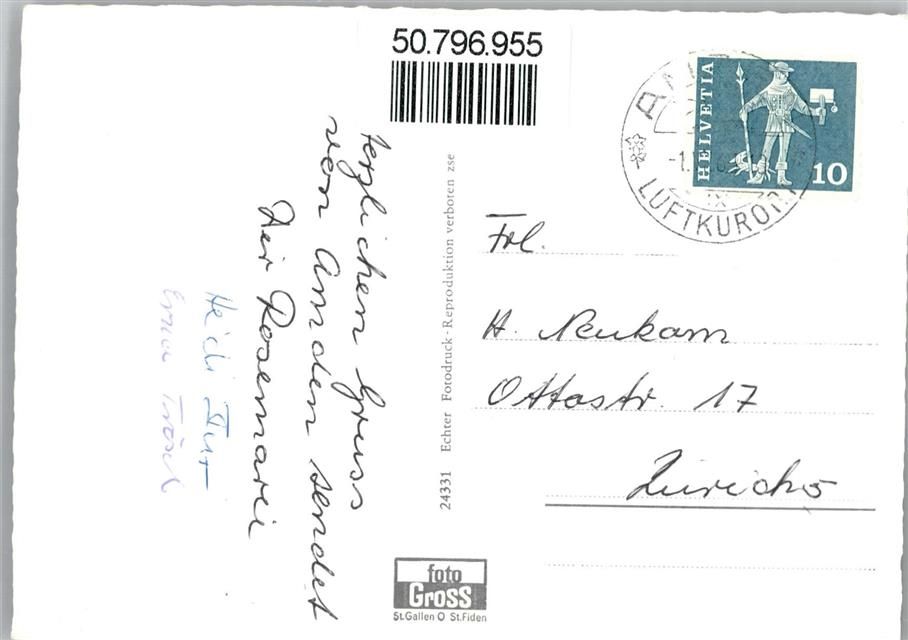 50.796.955
HELVETIA
10
LUFTKURORT
Herzlichen Gruss
von Amden sendet
Dir Rosemarie
Heidi
Erna
24331 Echter Fotodruck · Reproduktion verboten zse
Frl.
H. Neukom
Ottostr. 17
Zürich 5
foto
Gross
St.Gallen O St.Fiden